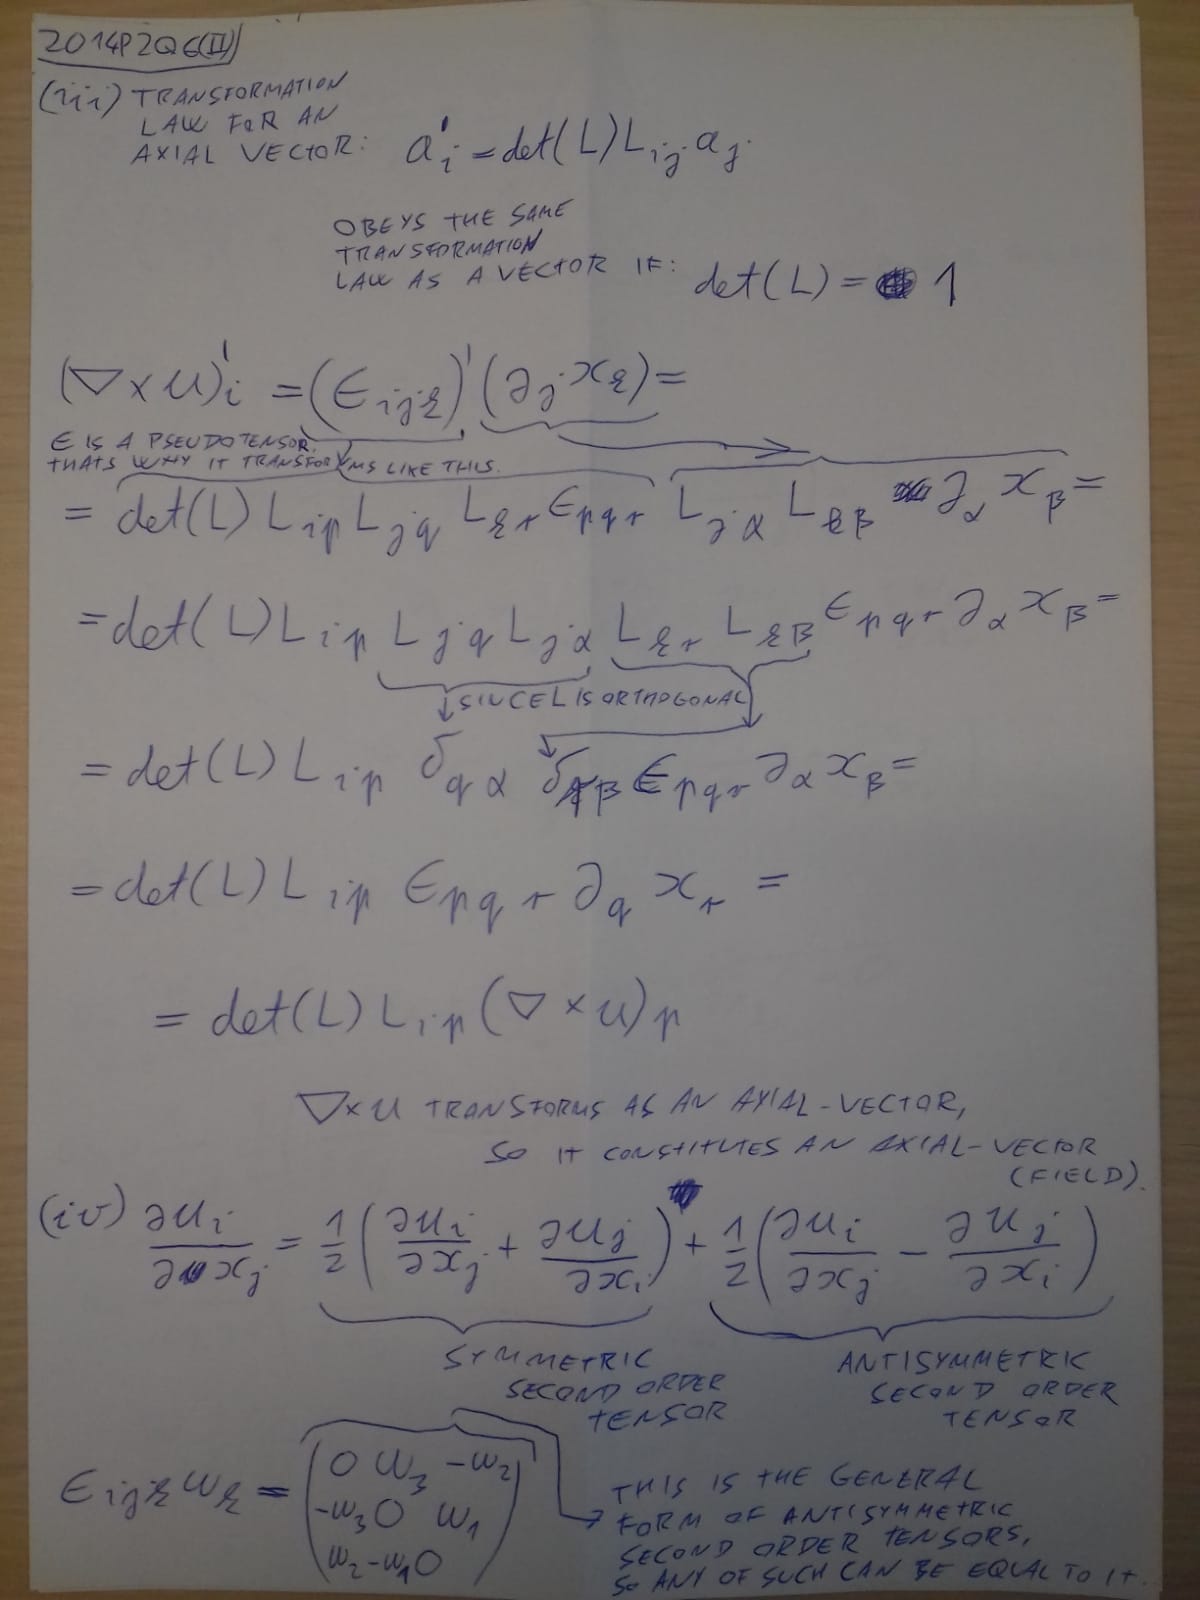 2014P2Q6(II)
(iii) TRANSFORMATION
LAW FOR AN
AXIAL VECTOR: a'_i = det(L) L_ij a_j
OBEYS THE SAME
TRANSFORMATION
LAW AS A VECTOR IF: det(L) = 1
(∇×u)'_i = (ϵ_ijk)' (∂_j x_k)' =
ϵ IS A PSEUDOTENSOR.
THATS WHY IT TRANSFORMS LIKE THIS.
= det(L) L_ip L_jq L_kr ϵ_pqr L_jα L_kβ ∂_α x_β =
= det(L) L_ip L_jq L_jα L_kr L_kβ ϵ_pqr ∂_α x_β =
SINCE L IS ORTHOGONAL
= det(L) L_ip δ_qα δ_rβ ϵ_pqr ∂_α x_β =
= det(L) L_ip ϵ_pqr ∂_q x_r =
= det(L) L_ip (∇×u)_p
∇×u TRANSFORMS AS AN AXIAL-VECTOR,
SO IT CONSTITUTES AN AXIAL-VECTOR
(FIELD).
(iv) ∂u_i/∂x_j = 1/2 (∂u_i/∂x_j + ∂u_j/∂x_i) + 1/2 (∂u_i/∂x_j − ∂u_j/∂x_i)
SYMMETRIC
SECOND ORDER
TENSOR
ANTISYMMETRIC
SECOND ORDER
TENSOR
ϵ_ijk ω_k = (0 ω_3 -ω_2
-ω_3 0 ω_1
ω_2 -ω_1 0)
THIS IS THE GENERAL
FORM OF ANTISYMMETRIC
SECOND ORDER TENSORS,
SO ANY OF SUCH CAN BE EQUAL TO IT.